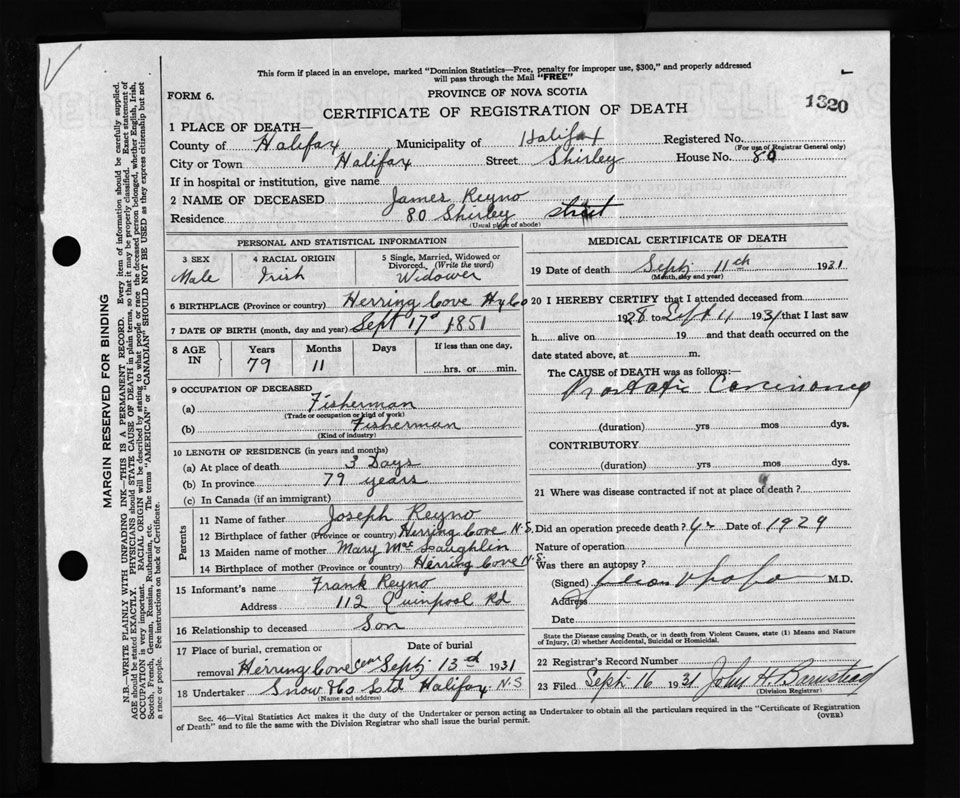 This form if placed in an envelope, marked "Dominion Statistics—Free, penalty for improper use, $300," and properly addressed
will pass through the Mail "FREE"
FORM 6.
PROVINCE OF NOVA SCOTIA
CERTIFICATE OF REGISTRATION OF DEATH
1320
1 PLACE OF DEATH—
County of Halifax Municipality of Halifax Registered No.
(For use of Registrar General only)
City or Town Halifax Street Shirley House No. 80
If in hospital or institution, give name
2 NAME OF DECEASED James Reyno
Residence 80 Shirley Street
(Usual place of abode)
PERSONAL AND STATISTICAL INFORMATION
3 SEX 4 RACIAL ORIGIN 5 Single, Married, Widowed or
Divorced, (Write the word)
Male Irish Widower
6 BIRTHPLACE (Province or country) Herring Cove Hx Co
7 DATE OF BIRTH (month, day and year) Sept 17th 1851
8 AGE IN Years Months Days If less than one day,
79 11 hrs. or min.
9 OCCUPATION OF DECEASED
(a) Fisherman
(Trade or occupation or kind of work)
(b) Fisherman
(Kind of industry)
10 LENGTH OF RESIDENCE (in years and months)
(a) At place of death 3 Days
(b) In province 79 years
(c) In Canada (if an immigrant)
Parents
11 Name of father Joseph Reyno
12 Birthplace of father (Province or country) Herring Cove N.S.
13 Maiden name of mother Mary McLaughlin
14 Birthplace of mother (Province or country) Herring Cove N.S.
15 Informant's name Frank Reyno
Address 112 Quinpool Rd
16 Relationship to deceased Son
17 Place of burial, cremation or Date of burial
removal Herring Cove Cem Sept 13rd 1931
18 Undertaker Snow & Co Ltd Halifax N-S
(Name and address)
MEDICAL CERTIFICATE OF DEATH
19 Date of death Sept 11th 1931
(Month, day and year)
20 I HEREBY CERTIFY that I attended deceased from
1928 to Sept 11 1931 that I last saw
h alive on 19 and that death occurred on the
date stated above, at m.
The CAUSE of DEATH was as follows:—
Prostatic Carcinoma
(duration) yrs mos dys.
CONTRIBUTORY
(duration) yrs mos dys.
21 Where was disease contracted if not at place of death?
Did an operation precede death? Date of 1929
Nature of operation
Was there an autopsy?
(Signed) M.D.
Address
Date
State the Disease causing Death, or in death from Violent Causes, state (1) Means and Nature
of Injury, (2) whether Accidental, Suicidal or Homicidal.
22 Registrar's Record Number
23 Filed Sept 16 1931 John H Barnstead
(Division Registrar)
Sec. 46—Vital Statistics Act makes it the duty of the Undertaker or person acting as Undertaker to obtain all the particulars required in the "Certificate of Registration
of Death" and to file the same with the Division Registrar who shall issue the burial permit.
(OVER)
MARGIN RESERVED FOR BINDING
N.B.—WRITE PLAINLY WITH UNFADING INK—THIS IS A PERMANENT RECORD. Every item of information should be carefully supplied.
AGE should be stated EXACTLY. PHYSICIANS should STATE CAUSE OF DEATH in plain terms, so that it may be properly classified. Exact statement of
OCCUPATION is very important. RACIAL ORIGIN will be described by stating to what people or race the deceased person belonged, whether English, Irish,
Scotch, French, German, Russian, Ruthenian, etc. The terms "AMERICAN" or "CANADIAN" SHOULD NOT BE USED as they express citizenship but not
a race or people. See instructions on back of Certificate.